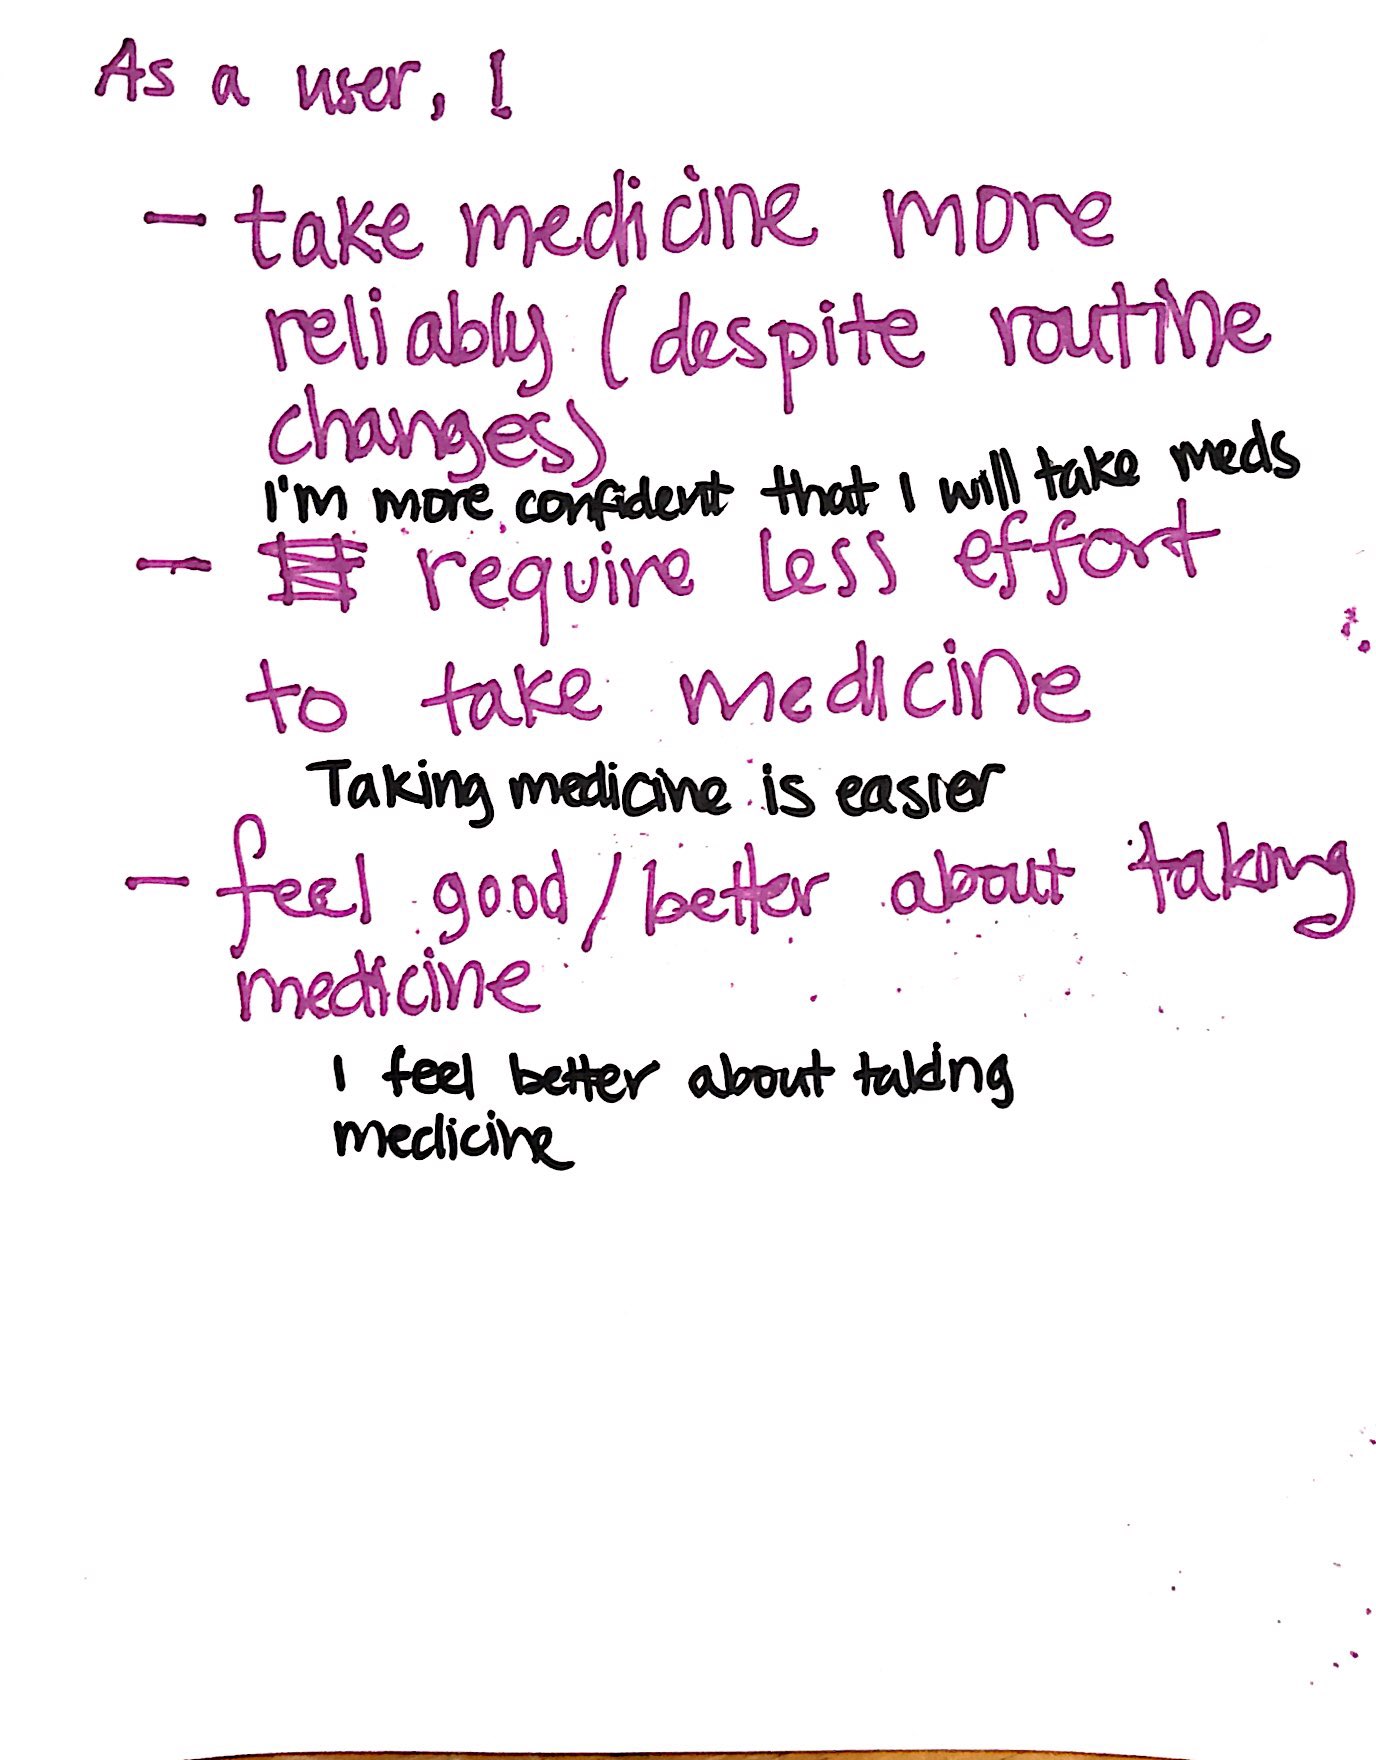 As a user, I
- take medicine more
reliably (despite routine
changes)
I'm more confident that I will take meds
- require less effort
to take medicine
Taking medicine is easier
- feel good/better about taking
medicine
I feel better about taking
medicine